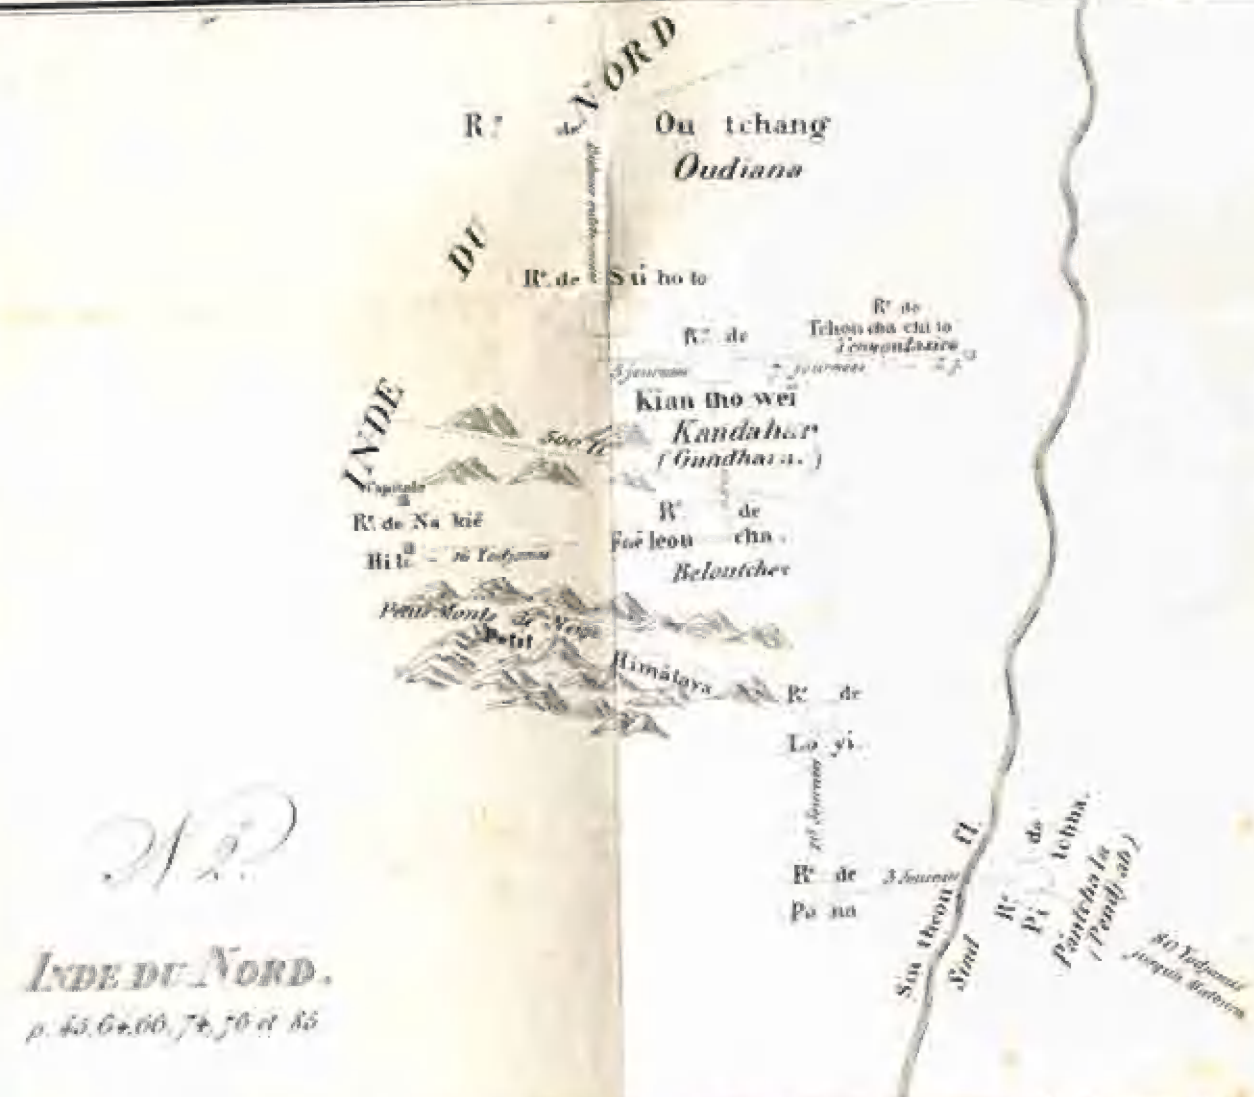 INDE DU NORD
R.e de Ou tchang
Oudiana
R.e de Su ho to
R.e de
Tchou cha chi lo
R.e de
5 journées 7 journées 2 j.
Kian tho weï
Kandahar
(Gandhara.)
500 li
Capitale
R.e de Na kië
Hi lo 16 Yodjanas
R.e de
Foë leou cha.
Beloutches
Petits Monts de Neige
Petit Himâlaya
R.e de
Lo yi.
10 Journées
R.e de 3 Journées
Po na
Sin theou fl.
Sind
R.e de
Pi tchha.
Pântcha la
(Pendj âb)
80 Yodjanas
jusqu'à Matoura
N.o 2.
INDE DU NORD.
p. 45, 64, 66, 74, 76 et 85